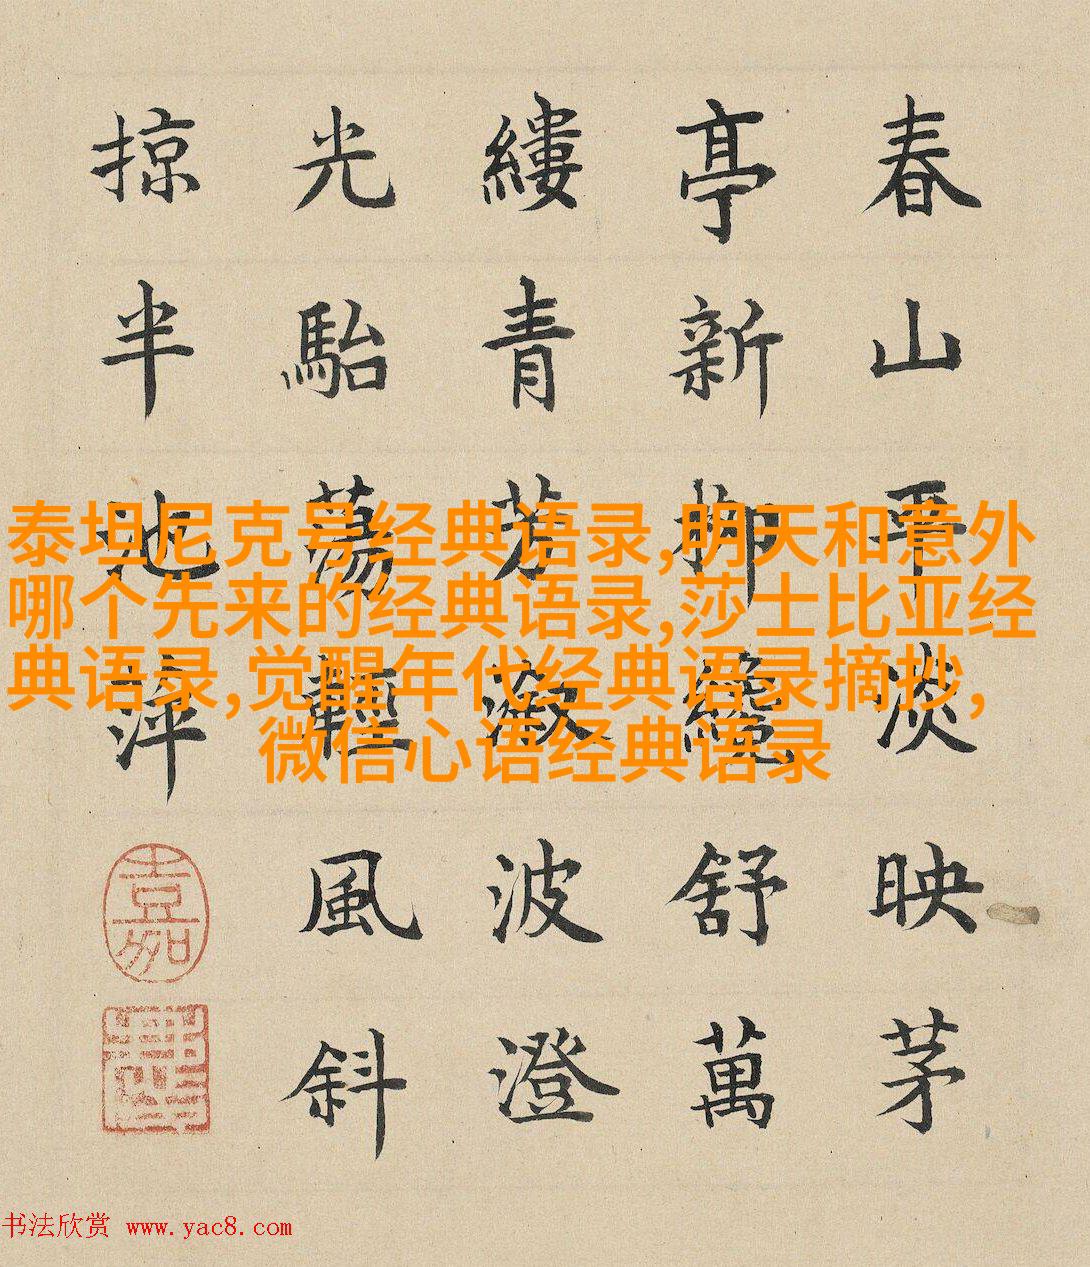 春山平淡映茅
亭新柳纔舒萬
縷青芳波澄
光駘蕩輕風斜
掠半池萍
嘉
泰坦尼克号经典语录,明天和意外
哪个先来的经典语录,莎士比亚经
典语录,觉醒年代经典语录摘抄,
微信心语经典语录
书法欣赏 www.yac8.com